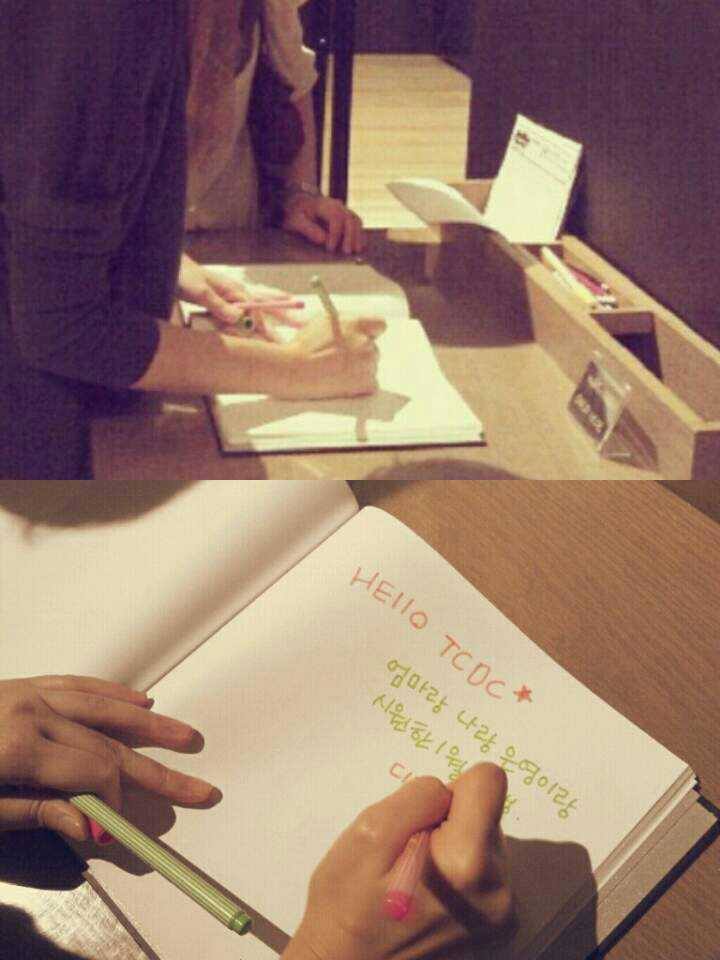 HEllO TCDC★
엄마랑 나랑 운영이랑
시원한 1월